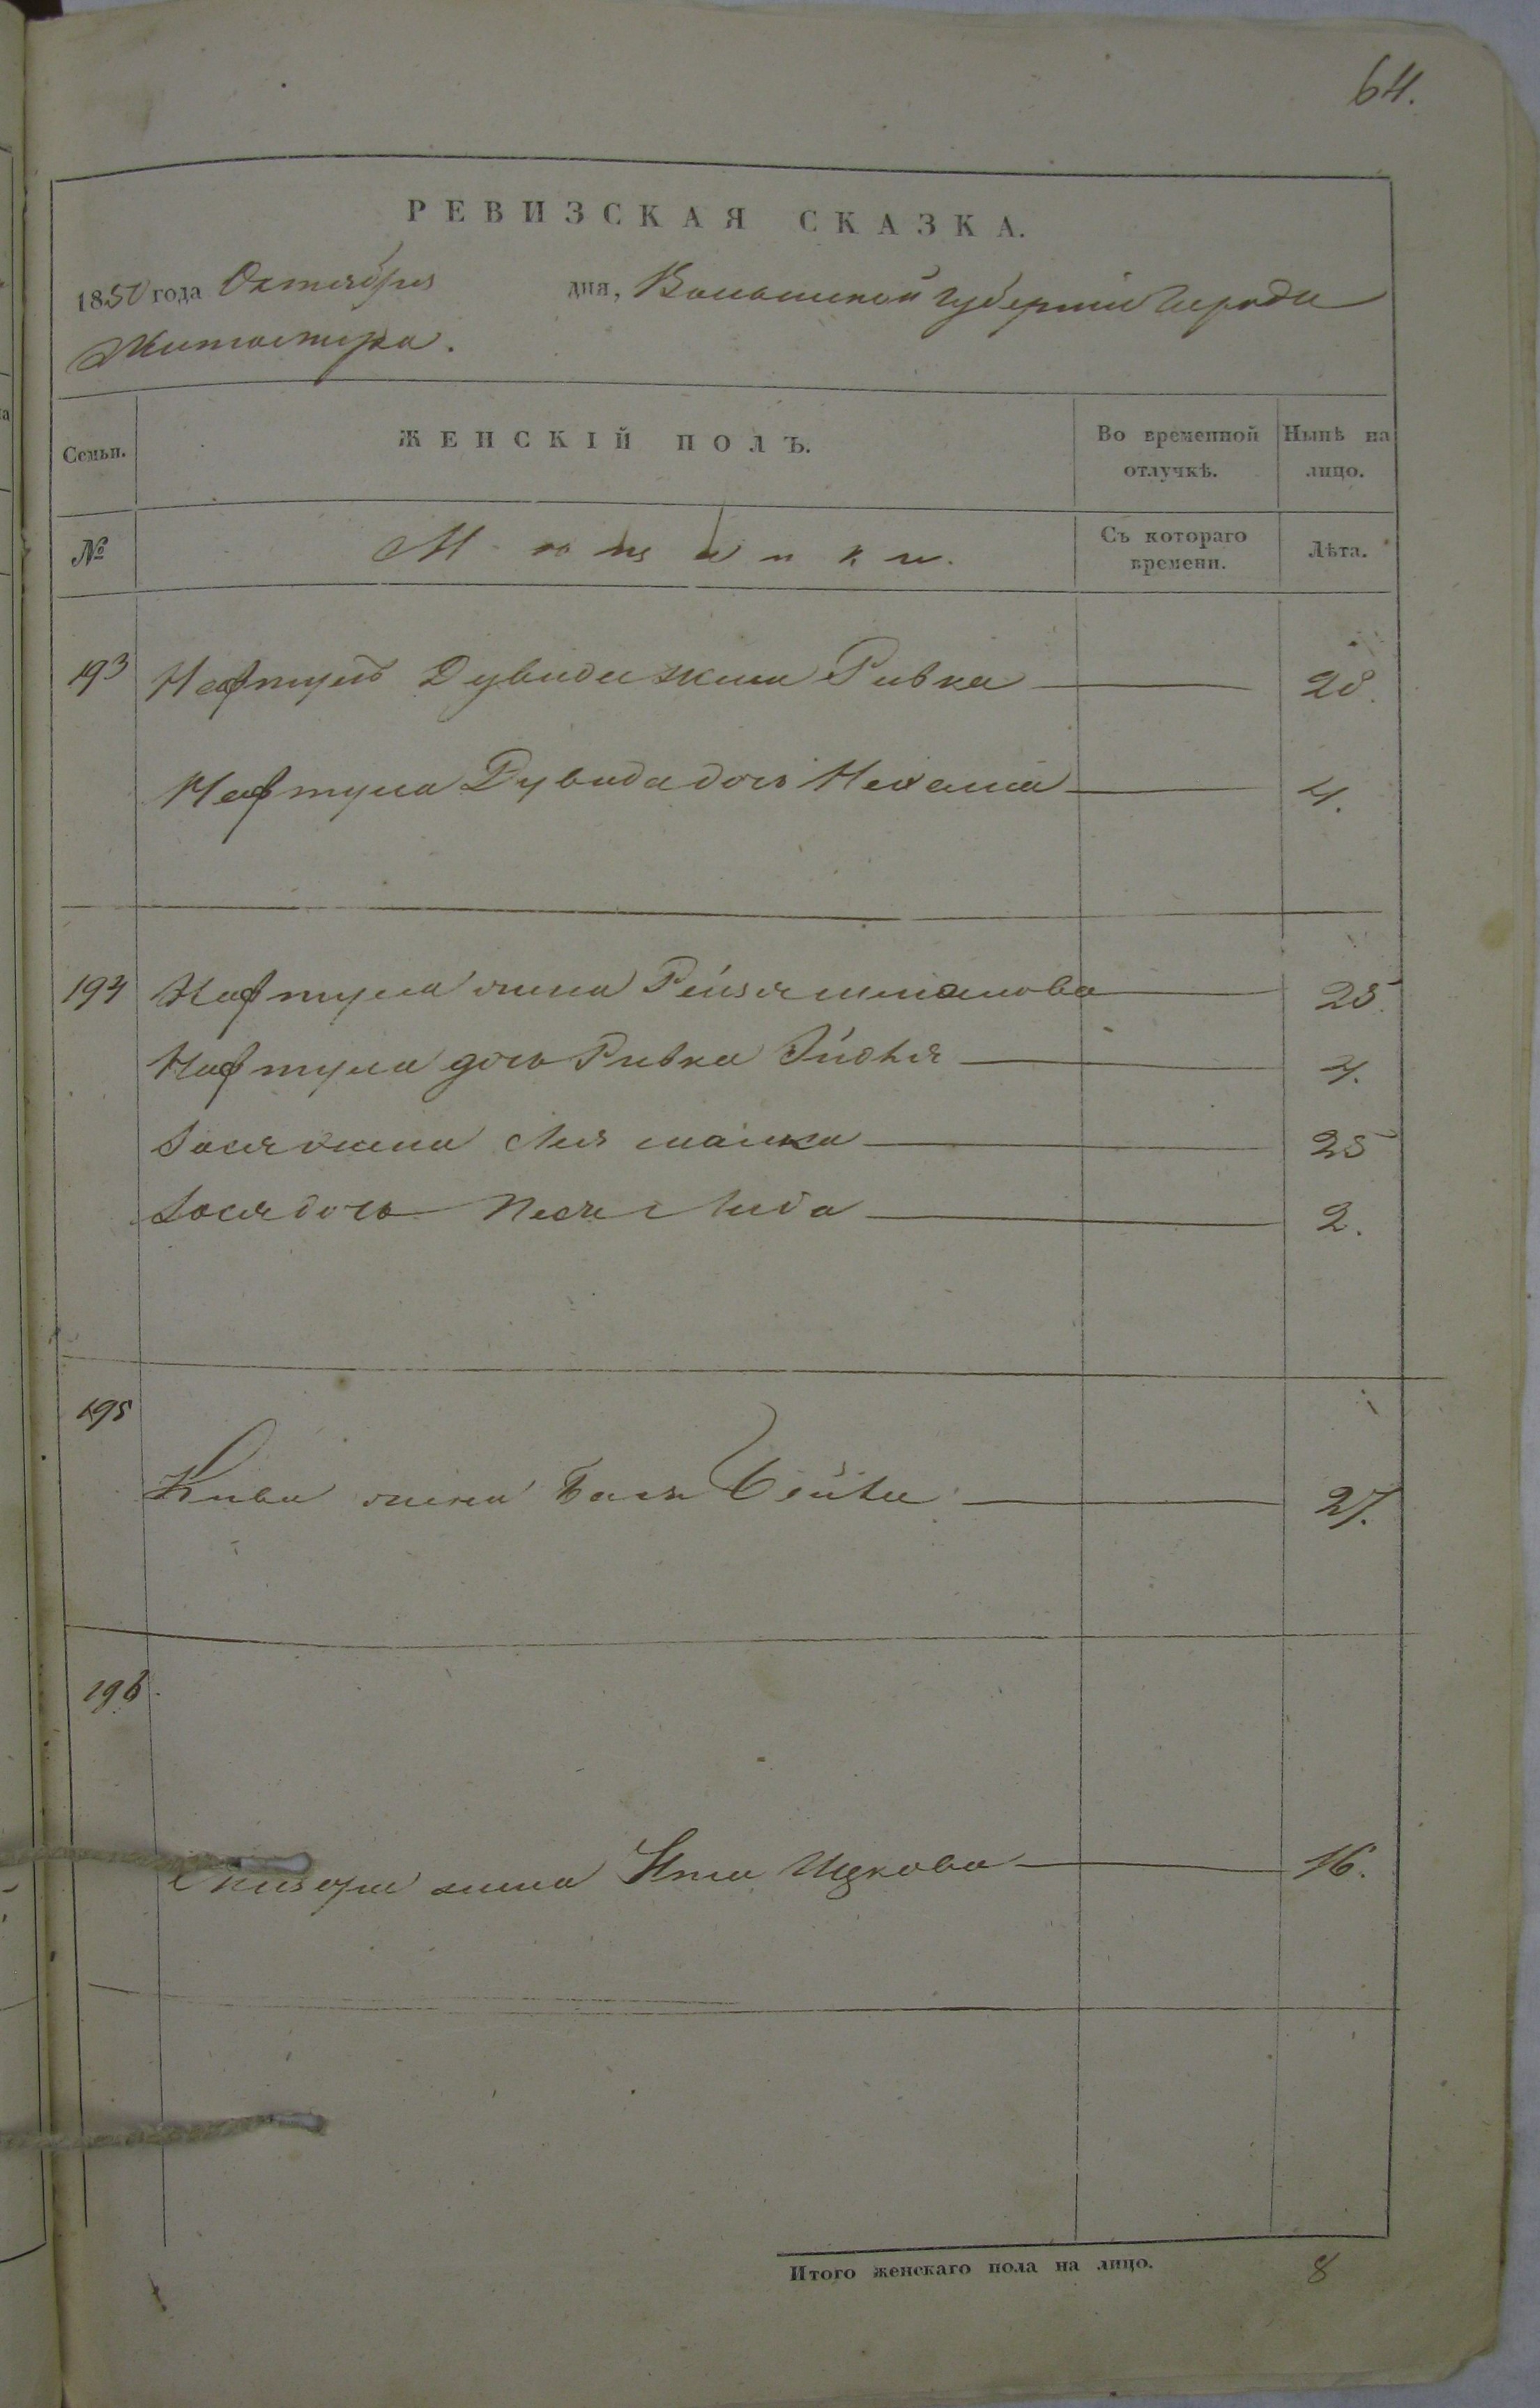 64.
РЕВИЗСКАЯ СКАЗКА.
1850 года Октября дня, Волынской губерніи города
Житомира.
Семьи. ЖЕНСКІЙ ПОЛЪ. Во временной отлучкѣ. Нынѣ на лицо.
№ Мѣщанки. Съ котораго времени. Лѣта.
193 Нафтулъ Дувида жена Ривка 28.
Нафтула Дувида дочь Нехама 4.
194 Нафтула жена Рейзя 25.
Нафтула дочь Ривка 4.
Іося жена Лея 25
Іося дочь Песя Либа 2.
195
Кива жена Бася Бейла 27.
196.
жена Ита Ицкова 16.
Итого женскаго пола на лицо. 8